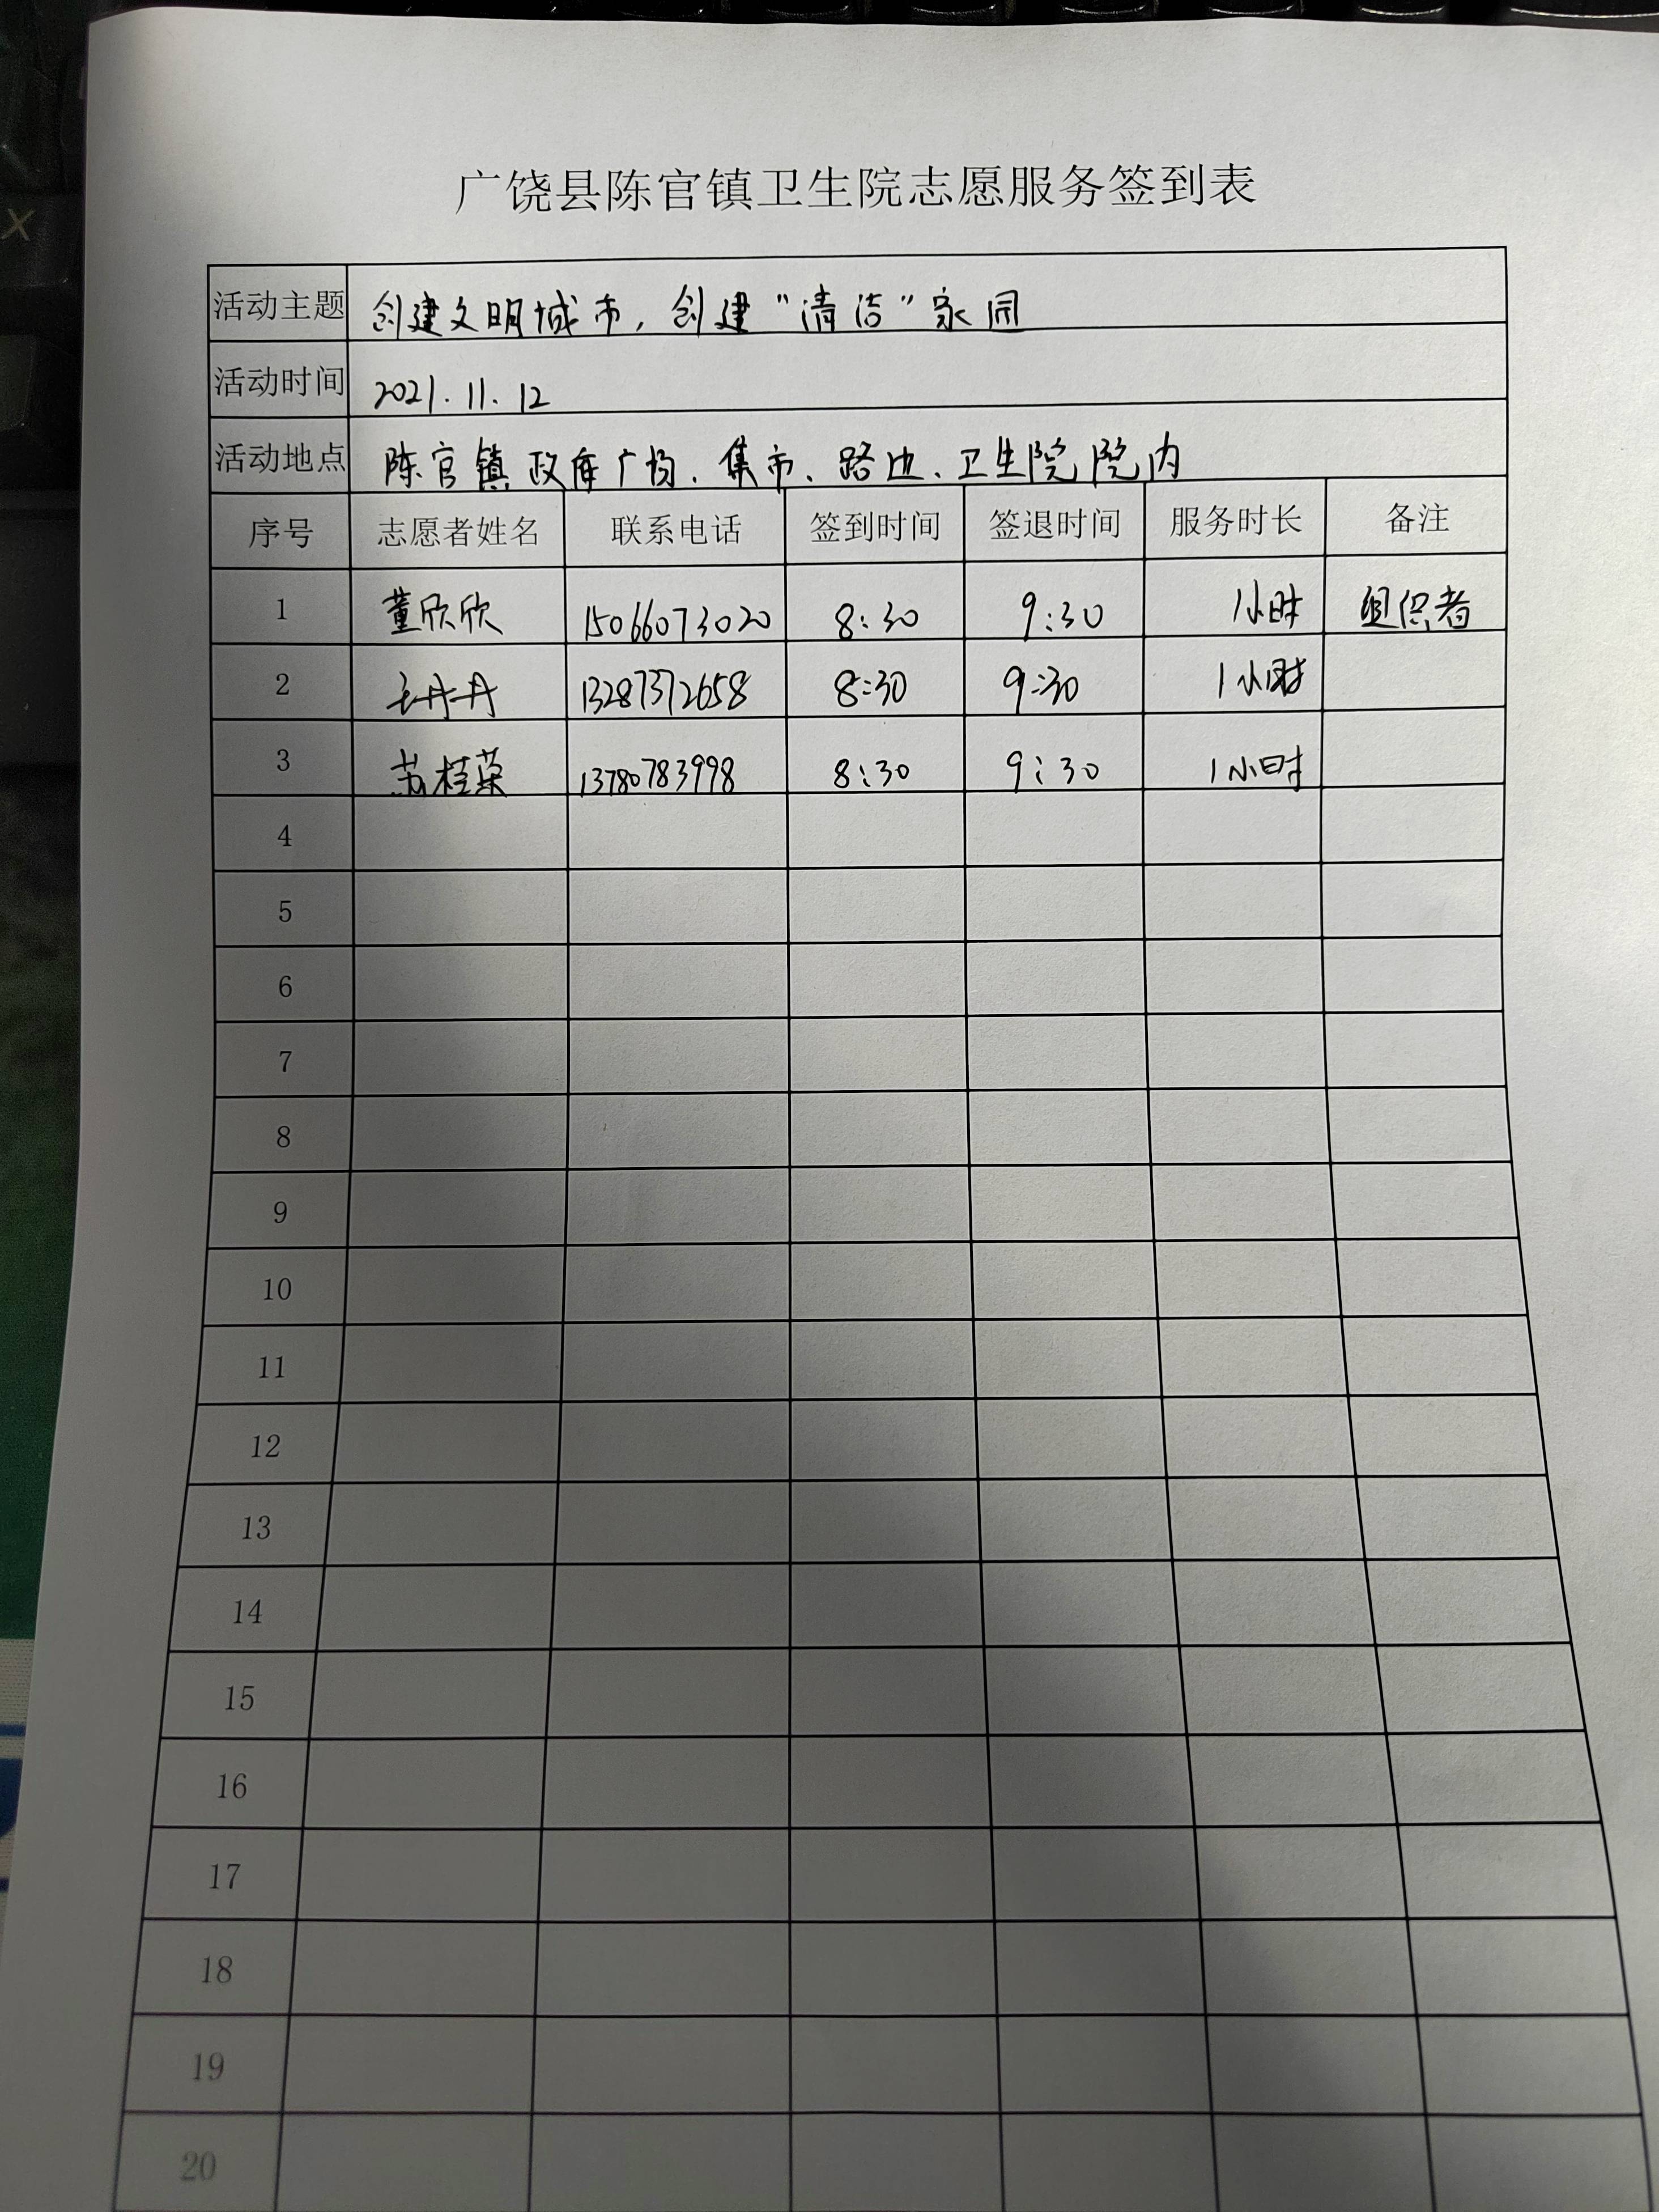 广饶县陈官镇卫生院志愿服务签到表
活动主题 创建文明城市，创建“清洁”家园
活动时间 2021.11.12
活动地点 陈官镇政府广场、集市、路边、卫生院院内
序号 志愿者姓名 联系电话 签到时间 签退时间 服务时长 备注
1 董欣欣 15066073020 8:30 9:30 1小时 组织者
2 王丹丹 13287372658 8:30 9:30 1小时
3 苏桂荣 13780783998 8:30 9:30 1小时
4
5
6
7
8
9
10
11
12
13
14
15
16
17
18
19
20